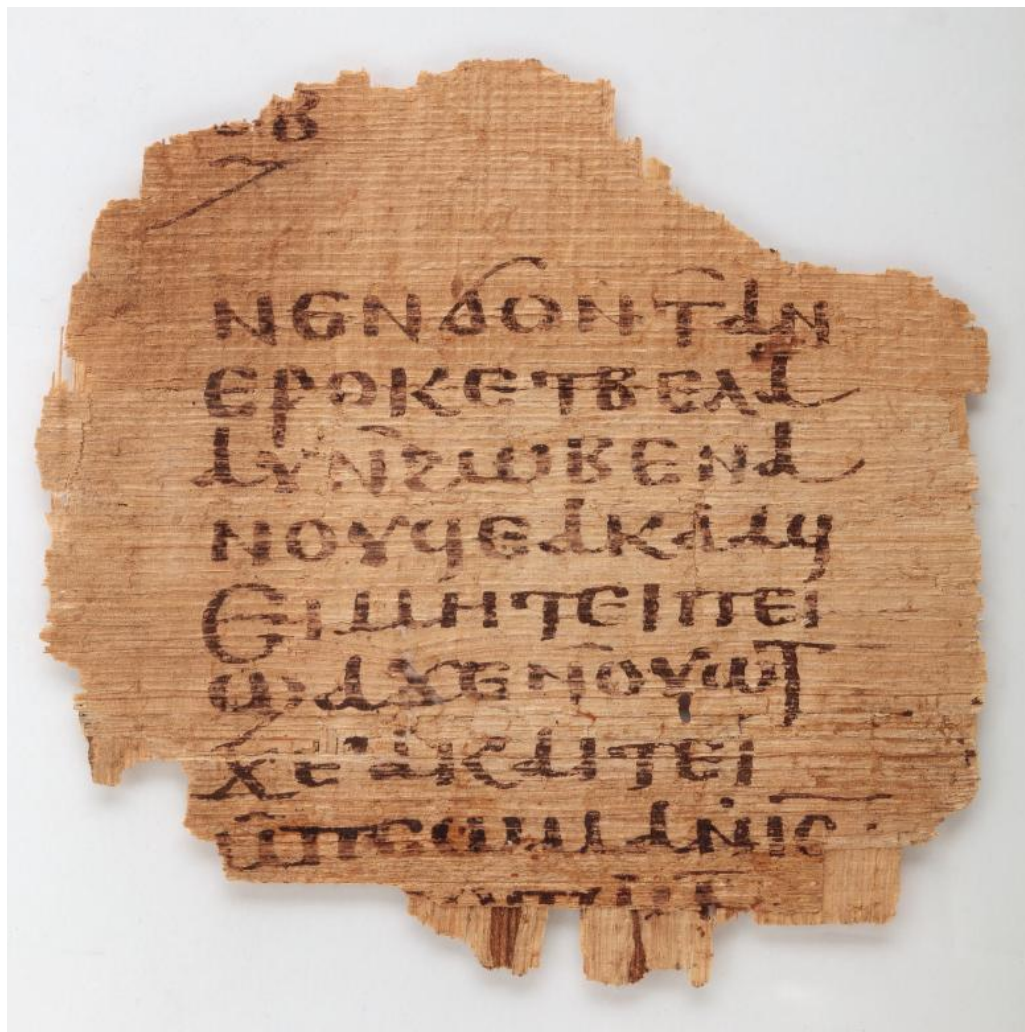 ⲃ
ⲛⲉⲛϭⲟⲛⲧ̄ⲁⲛ
ⲉⲣⲟⲕⲉⲧⲃⲉⲗⲁ
ⲁⲩⲛ̄ϩⲱⲃⲉⲛⲁ
ⲛⲟⲩϥⲉⲁⲕⲁⲁϥ
ⲉⲓⲙⲏⲧⲉⲓⲡⲉⲓ
ϣⲁϫⲉⲛ̄ⲟⲩⲱⲧ
ϫⲉⲁⲕⲁⲓⲧⲉⲓ
ⲙ̄ⲡⲥⲱⲙⲁⲛ̄ⲓ̄ⲥ̄